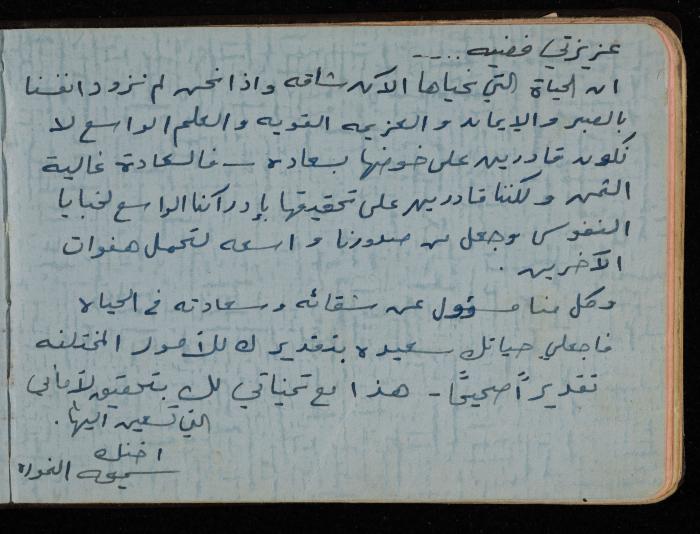 عزيزتي فضيه .....
ان الحياة التي نحياها الآن شاقه واذا نحن لم نزود انفسنا
بالصبر والإيمان والعزيمه القويه والعلم الواسع لا
نكون قادرين على خوضها بسعاده – فالسعادة غالية
الثمن ولكننا قادرين على تحقيقها بإدراكنا الواسع لخبايا
النفوس وجعل من صدورنا واسعه لتحمل هفوات
الآخرين .
وكل منا مسؤول عن شقائه وسعادته في الحياه
فاجعلي حياتك سعيده بتقديرك للأمور المختلفه
تقديراً صحيحاً – هذا مع تمنياتي لك بتحقيق لأماني
التي تسعين اليها .
اختك
سميحه